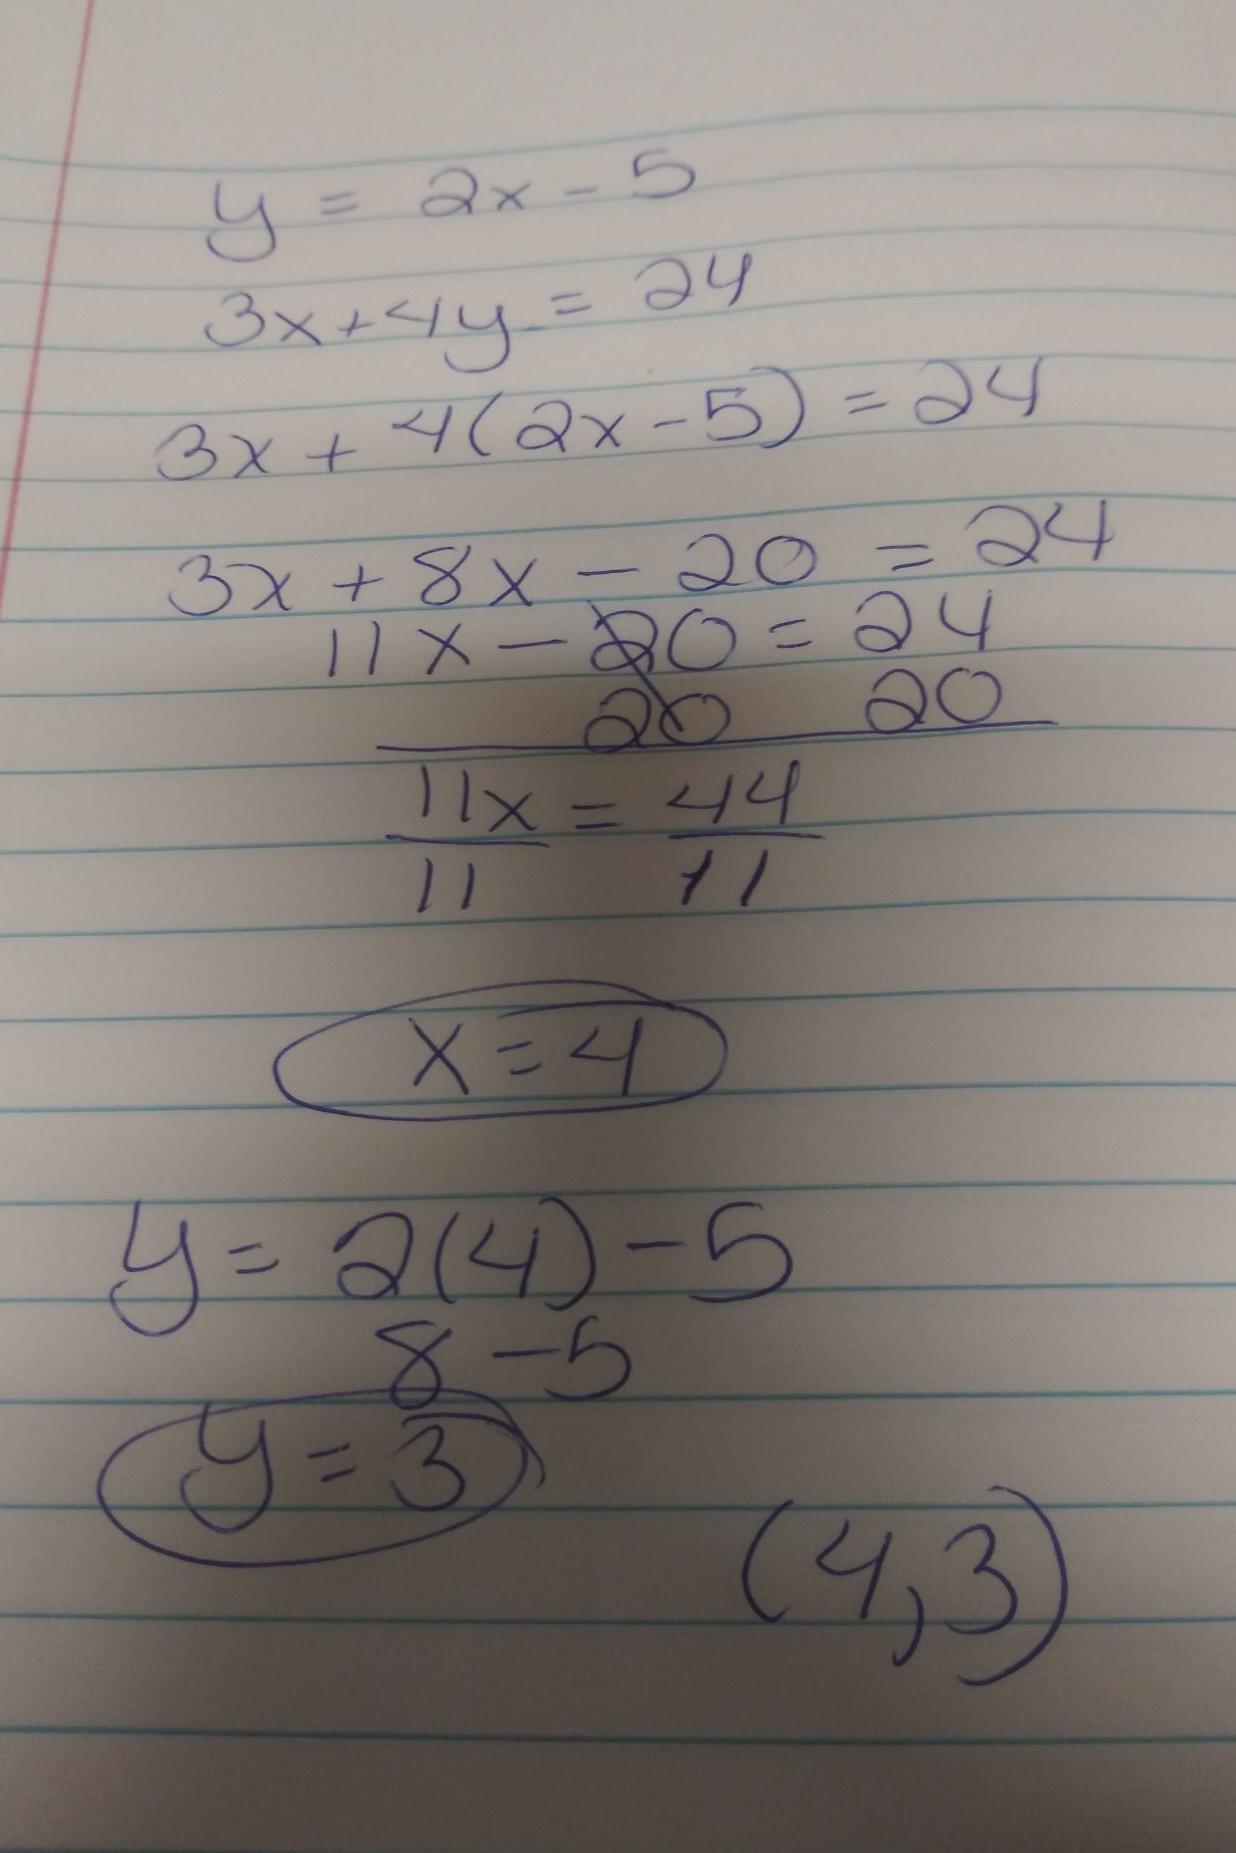 y = 2x - 5
3x + 4y = 24
3x + 4(2x - 5) = 24
3x + 8x - 20 = 24
11x - 20 = 24
20 20
11x = 44
11 11
x = 4
y = 2(4) - 5
8 - 5
y = 3
(4,3)